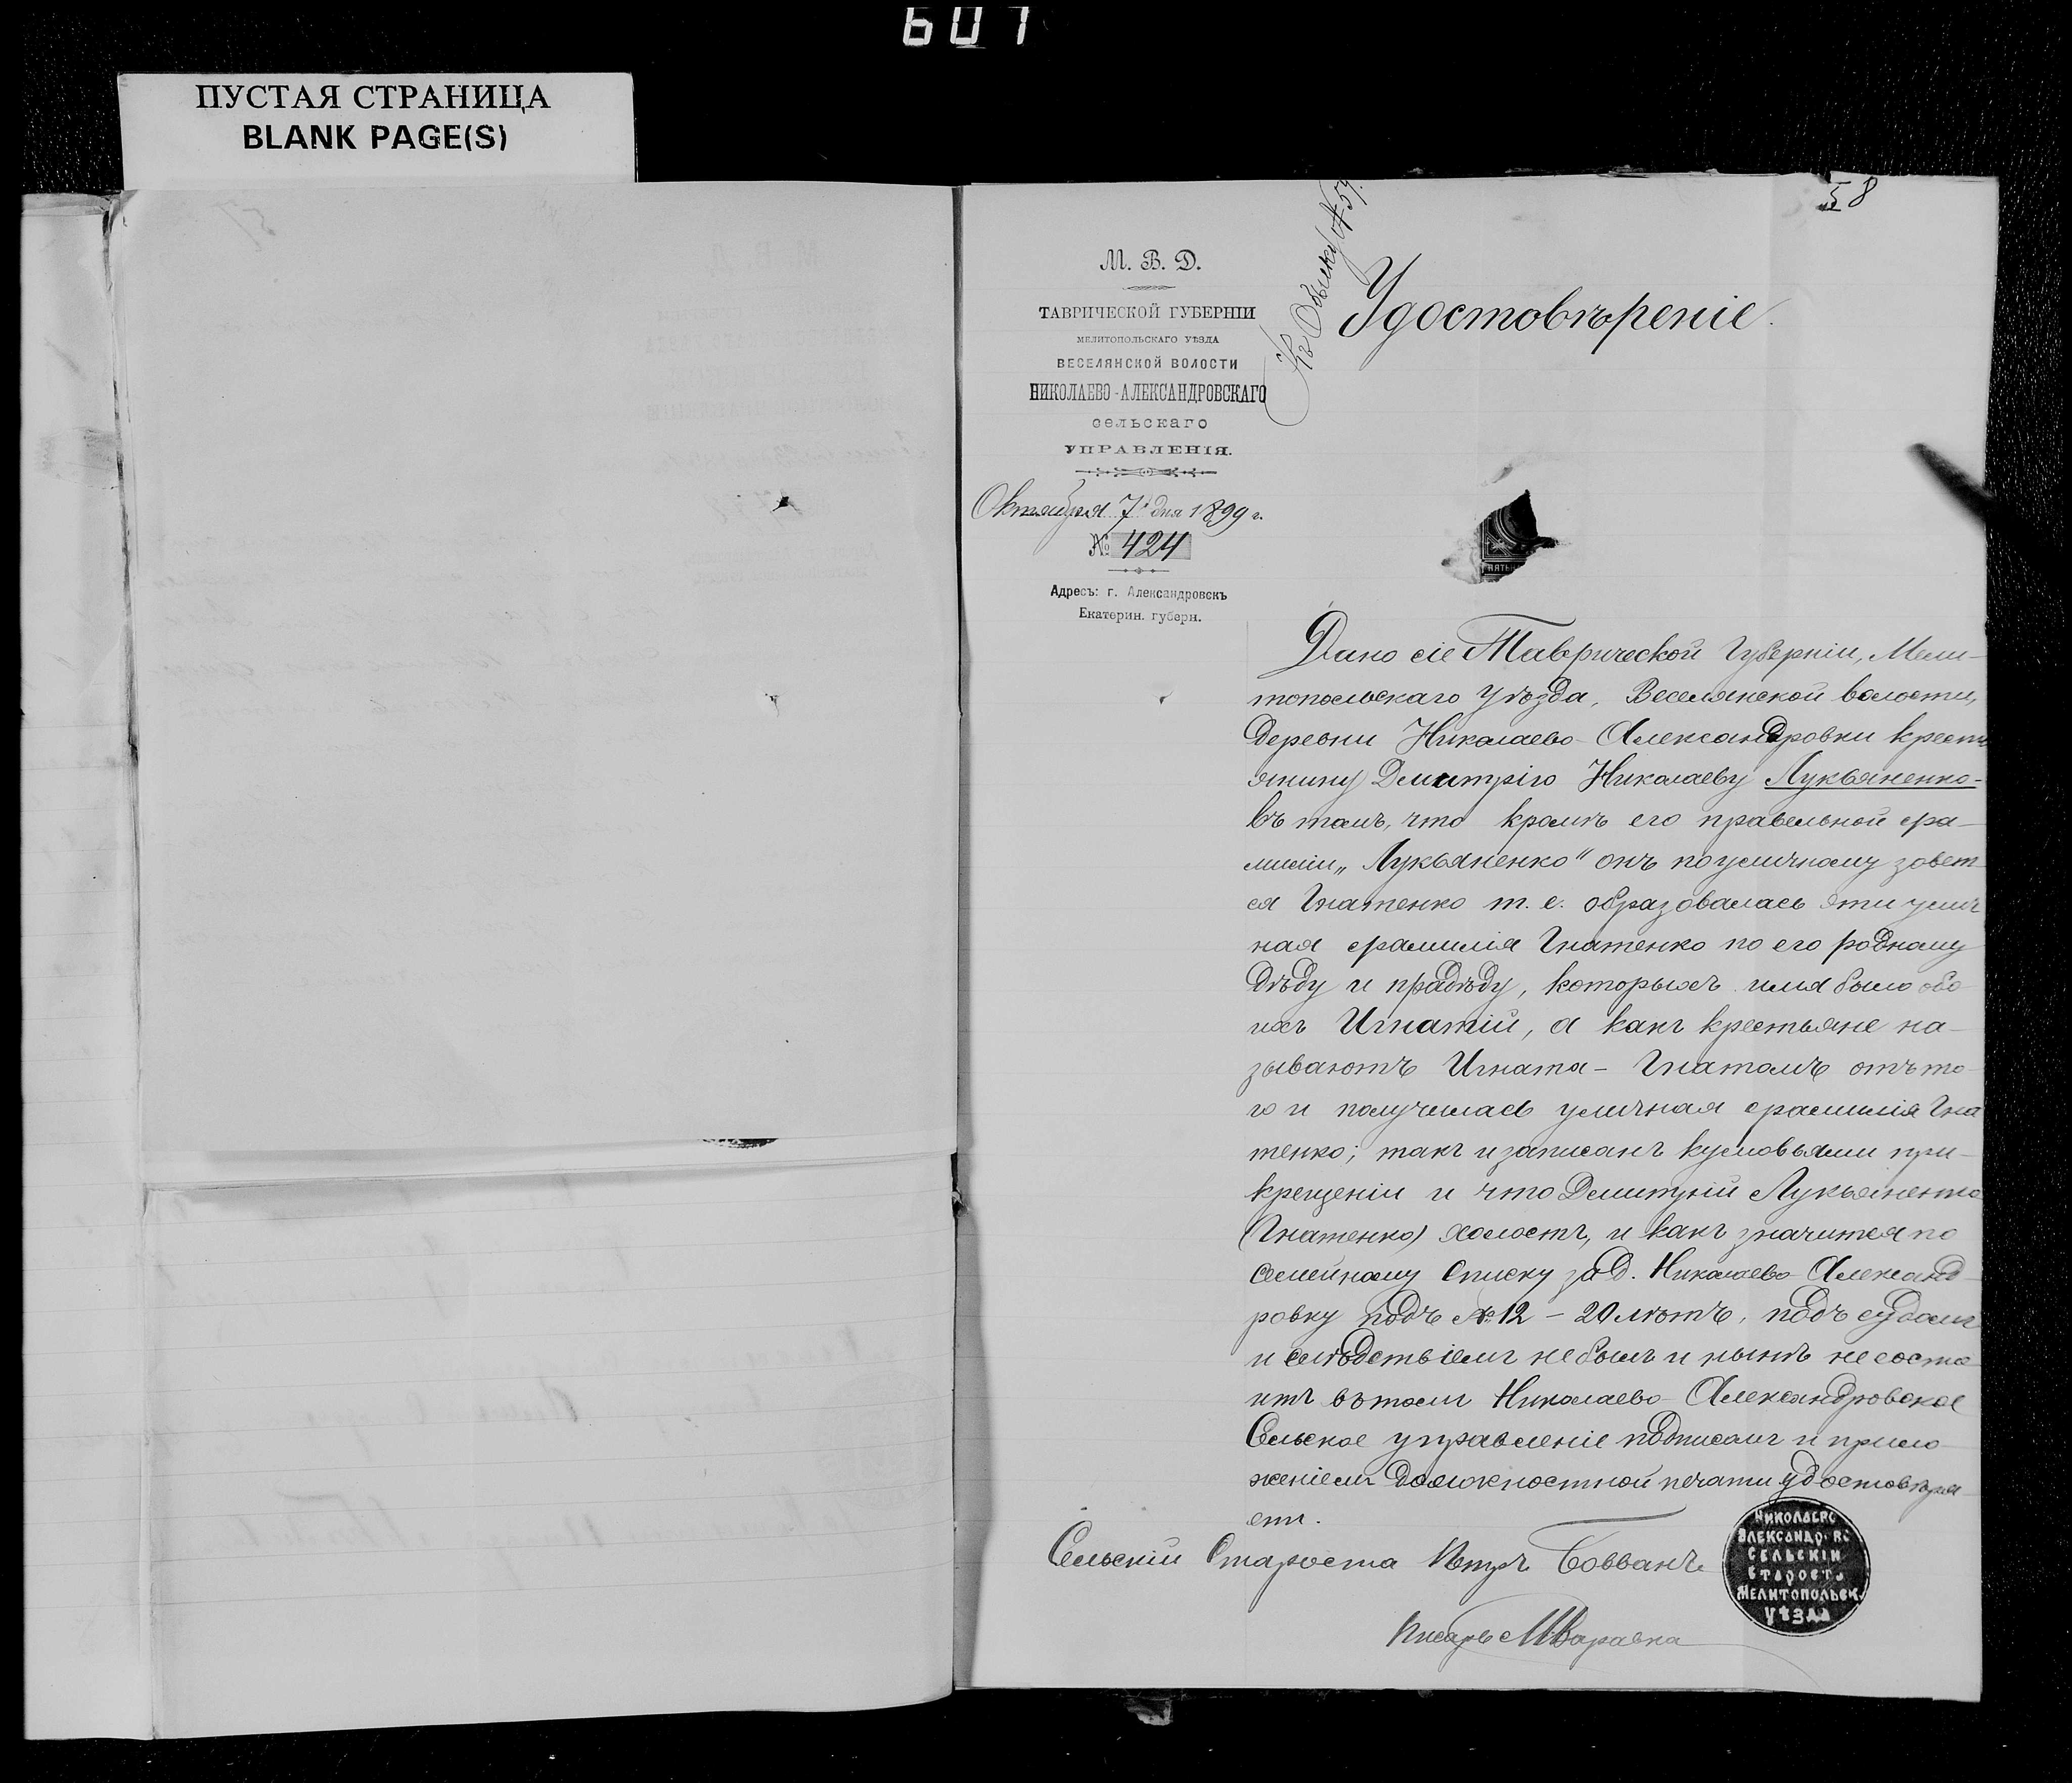 607
ПУСТАЯ СТРАНИЦА
BLANK PAGE(S)
58
Къ Обыску № 57.
М. В. Д.
ТАВРИЧЕСКОЙ ГУБЕРНІИ
МЕЛИТОПОЛЬСКАГО УѢЗДА
ВЕСЕЛЯНСКОЙ ВОЛОСТИ
НИКОЛАЕВО-АЛЕКСАНДРОВСКАГО
сельскаго
УПРАВЛЕНІЯ.
Октября 7 дня 1899 г.
№ 424
Адресъ: г. Александровскъ
Екатерин. губерн.
Удостовѣреніе.
Дано сіе Таврической Губерніи, Мели-
топольскаго уѣзда, Веселянской волости,
деревни Николаево-Александровки кресть
янину Дмитрію Николаеву Лукьяненко-
въ томъ, что кромѣ его правельной фа-
миліи „Лукьяненко" онъ по уличному зовет
ся Гнатенко т. е. образовалась эти улич
ная фамилія Гнатенко по его родному
дѣду и прадѣду, которыхъ имя было обо
ихъ Игнатій, а какъ крестьяне на-
зываютъ Игната - Гнатомъ отъ то-
го и получилась уличная фамилія Гна
тенко; такъ и записанъ кумовьями при-
крещеніи и что Дмитрій Лукьяненко
(Гнатенко) холостъ, и какъ значится по
семейному списку за д. Николаево-Александ-
ровку подъ № 12 - 20 лѣтъ, подъ судомъ
и слѣдствіемъ не былъ и нынѣ не состо
итъ въ томъ Николаево-Александровское
Сельское управленіе подписомъ и прило-
женіемъ должностной печати удостовѣря-
етъ.
Сельскій Староста Петръ Бовванъ
Писарь М Варавка
НИКОЛАЕВО
АЛЕКСАНДРОВ
СЕЛЬСКІЙ
СТАРОСТА
МЕЛИТОПОЛЬСК.
УѢЗДА